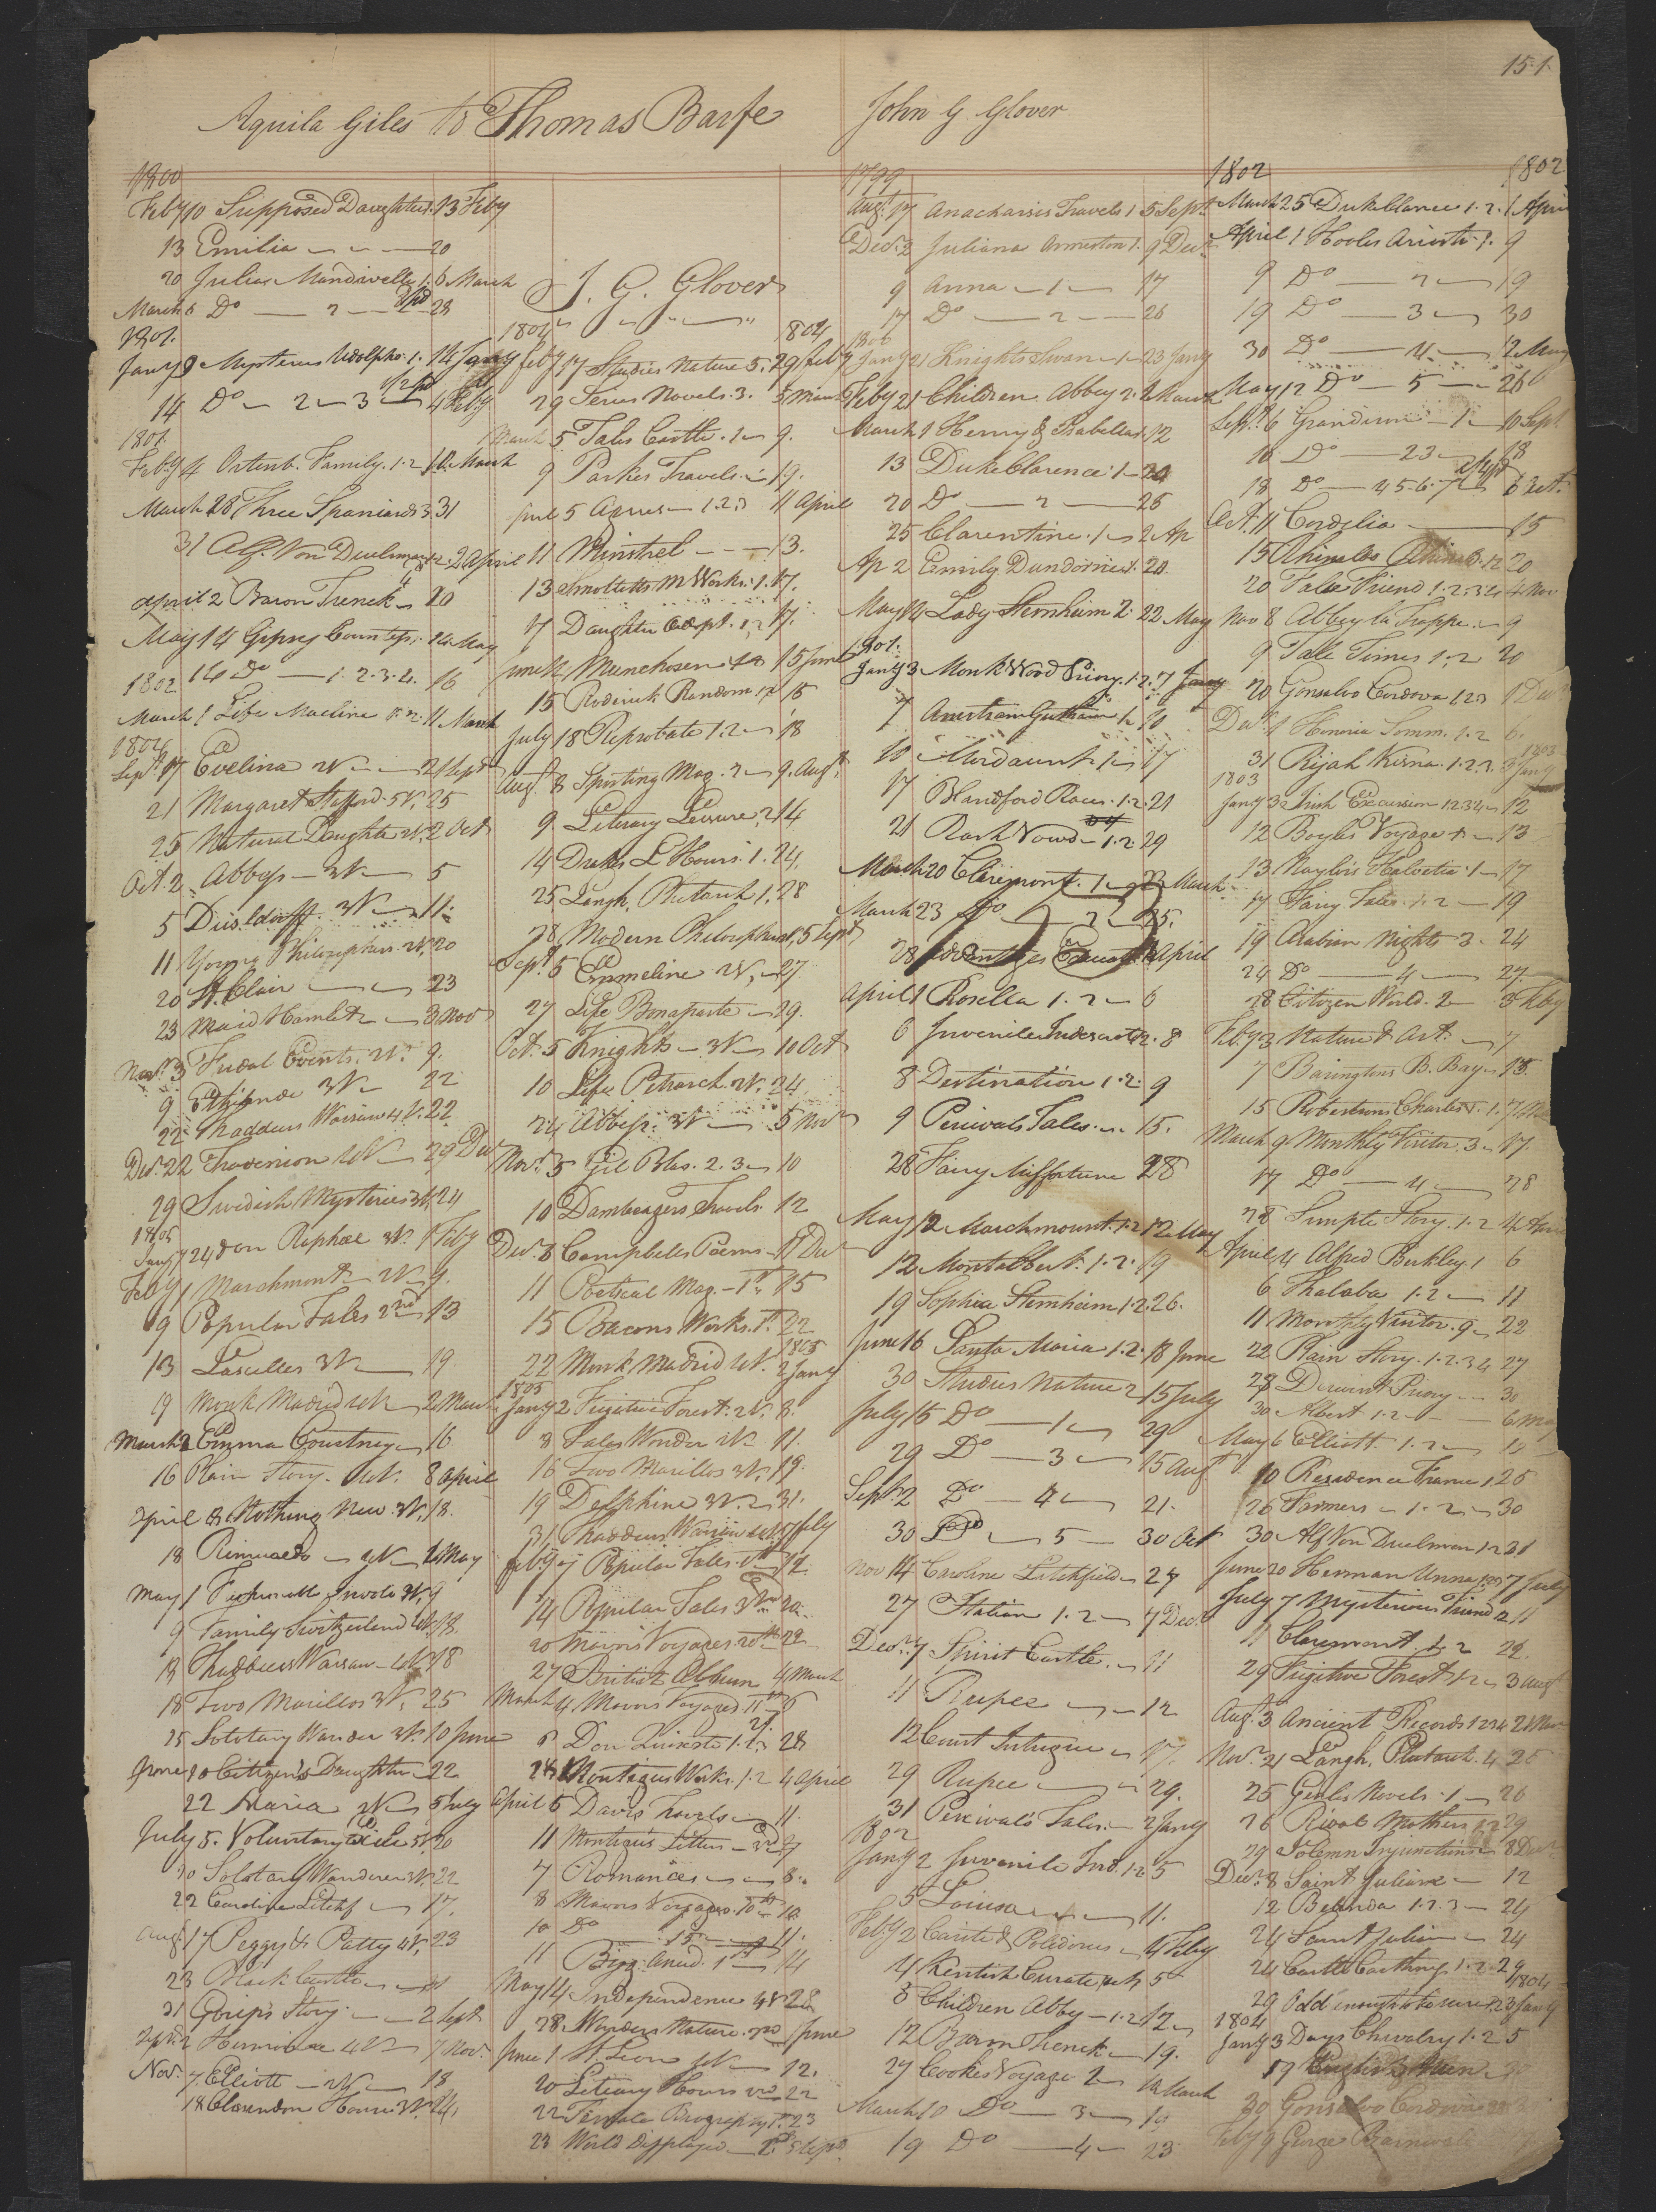 151.
Aquila Giles to Thomas Barfe
1800
Feby 10 Supposed Daughter 1. 13 Feby
13 Emilia 20
20 Julias Mandivelle 1. 6 March
March 6 Do 2 28
1801.
Jany 9 Mysteries Udolpho. 1. 14 Jany
14 Do 2 3 4 Feby
1801.
Feby 4 Ortenb. Family. 1. 2 March
March 28 Three Spaniards 3 31
31 Alf. Von Duelman 1 2 2 April
April 2 Baron Trenck 20
May 14 Gipsey Countess. 14 May
14 Do 1. 2. 3. 4. 16
1802
March 1 Life Machine 1. 2. 11 March
1804
Sept. 17 Evelina 2V. 21 Sept
21 Margaret Stafford. 5V. 25
25 Natural Daughter 2V. 2 Oct
Oct. 2 Abbess 3V 5
5 Dusseldorff. 3V 11.
11 Young Philosopher. 2V. 20
20 St. Clair 23
23 Maid Hamlet 2 3 Nov
Nov. 3 Fudal Events. 2V. 9.
9 Ethelinde 3V 22
22 Thaddeus Warsaw 4V. 22
Decr. 22 Travenion 29 Dec
29 Swedish Mysteries 3V. 24
1805
Jany 24 Don Raphael 3V. 1 Feby
Feby 1 Marchmont 2V 9.
9 Popular Tales 2nd 13
13 Lascelles 3V 19
19 Monk Madrid 2 March
March 2 Emma Courtney 16
16 Plain Story. 8 April
April 8 Nothing New. 3V. 18.
18 Rimualdo 2V 1 May
May 1 3V. 9
9 Family Switzerland 4V. 18.
18 Thaddeus Warsaw 4V. 18
18 Two Marillos 3V. 25
25 Solotary Wander 3V. 10 June
June 10 Citizen's Daughter 22
22 Maria 2V 5 July
July 5. Voluntary Exile 5V. 20
20 Solotary Wanderer 3V. 22
22 Caroline Litchf 17.
Aug. 17 Peggy & Patty 4V. 23
23 Black Castle 31
31 Gossips Story 2 Sept
Sept. 2 4V 7 Nov.
Nov. 7 Elliott 2V 18
18 Clarendon House 3V. 24.
J. G. Glover
1804 1804
Feby 17 Studies Nature 5. 29 Feby
29 Series Novels. 3. 5 March
March 5 Tales Castle. 2 9.
9 Parkes Travels 19.
5 Agnes 1. 2. 3 11 April
11 Minstrel 13.
13 Smolletts M Works. 1. 17.
17 Daughter Adopt. 1. 2 17.
June 12 Munchosen 15 June
15 Roderick Random 1. 2 18
July 18 Reprobate 1. 2 18
Augt. 8 Sporting Mag. 2 9. Augt.
9 Literary Leisure 2 14
14 Drakes L Hours. 1. 24.
25 Langh. Plutarch 1. 28
28 Modern Philosophers 1. 5 Sept
Sept. 5 Emmeline 2V. 27.
27 Life Bonaparte 29.
Oct. 5 Knights 3V 10 Oct
10 Life Petrarch 2V. 24
24 Abbess. 3V 5 Nov
Nov. 5 Gil Blas. 2. 3 10
10 Dambergers Travels. 12
Decr. 8 Campbells Poems 11 Dec
11 Poetical Mag. 1st. 15
15 Bacons Works. 1st. 22
1805
22 Monk Madrid 2 Jany
1805
Jany 2 Fugitive Forest. 2V. 8.
8 Tales Wonder 2V 11.
16 Two Marillos 3V. 19.
19 Delphine 3V. 31.
31 Thaddeus Warsaw 7 July
Feby 7 Popular Tales. 1st 12.
14 Popular Tales 3rd 20.
20 Mavors Voyages. 20th 22
27 British Album 4 March
March 4 Mavors Voyages 11th 6
6 Don Quixote 1. 2. 28
28 Montagus Works. 1. 2 4 April
April 5 Davis Travels 11.
11 Montagus Letters 3rd 7
7 Romances 8.
8 Mavors Voyages 10th 10.
10 Do 15 11.
11 Bigg. Anecd. 1st 14
May 14 Independence 4V 28
28 Wonders Nature. 2nd 1 June
June 1 St. Leon 12.
20 Literary Hours 22
22 Female Biography 1st. 23
23 World Displayed
John G Glover
1799
Augt. 17 Anacharsis Travels 1 5 Sept.
Decr. 2 Juliana Ormeston 1. 9 Decr.
9 Anna 1 17
17 Do 2 26
1800
Jany 21 Knights Swan 1 23 Jany
Feby 21 Children Abbey 2. 1 March
March 1 Henry & Isabella 12
13 Duke Clarence 1 20
20 Do 2 25
25 Clarentine. 1 2 Ap
Ap 2 Emily Dundorne 1. 20.
May 14 Lady Sternheim 2. 22 May
1801.
Jany 3 Monk Wood Priory. 1. 2. 7 Jany
7 10
10 Mordaunt 1 17
17 Blandford Races. 1. 2. 21
21 Rash Vows 1. 2. 29
March 20 Claremont. 1 23 March
March 23 Do 2 25.
28 April
April 1 Rosella 1. 2 6
6 Juvenile Indiscretions 2. 8
8 Destination 1. 2. 9
9 Percivals Tales. 15.
28 Fairy Misfortune 28
May 12 Marchmount. 1. 2 12 May
12 Montalbert. 1. 2. 19
19 Sophia Sternheim 1. 2. 26.
June 16 Santa Maria 1. 2. 18 June
30 Studies Nature 2 15 July
July 15 Do 1 29
29 Do 3 15 Augt
Sept. 2 Do 4 21.
30 Do 5 30 Oct
Nov 14 Caroline Litchfield 27
27 Station 1. 2 7 Decr.
Decr. 7 Spirit Castle 11
11 Rupee 12
12 Court Intrigue 17.
29 Rupee 29.
31 Percival's Tales. 2 Jany
1802
Jany 2 Juvenile Ind. 1. 2 5
5 Louisa 11.
Feby 2 Carite & Polidorus 4 Feby
4 Kentish Curate 5
8 Children Abby 1. 2 12
12 Baron Trenck 19.
27 Cookes Voyage 2 10 March
March 10 Do 3 19
19 Do 4 23
1802 1802
March 25 Duke Clarence 1. 2. 1 April
April 1 Hooles Ariosto 1. 9
9 Do 2 19
19 Do 3 30
30 Do 4 12 May
May 12 Do 5 26
Sept. 6 Grandison 1 10 Sept.
10 Do 2 3 18
18 Do 4 5 6 7 6 Oct.
Oct. 11 Cordelia 15
15 1. 2 20
20 False Friend 1. 2. 3. 4 4 Nov
Nov 8 Abbey La Trappe. 9
9 Tale Times 1. 2 20
20 Gonsalvo Cordova 1. 2. 3 1 Decr
Decr. 1 Honoria Somm. 1. 2 6.
1803
31 Rijah Kisna. 1. 2. 3. 3 Jany
1803
Jany 3 Irish Excursion 1 2 3 4 12
12 Boyles Voyage 13
13 Naylors Helvetia. 1 17
17 Fairy Tales. 1. 2 19
19 Arabian Nights 3. 24
24 Do 4 27.
28 Citizen World. 2 3 Feby
Feby 3 Nature & Art. 7
7 Baringtons B. Bay 15.
15 Robertsons Charles V. 1. 7 Mar
March 9 Monthly Visitor. 3 17.
17 Do 4 28
28 Simple Story. 1. 2 4 April
April 4 Alfred Berkley. 1 6
6 Thalaba 1. 2 11
11 Monthly Visitor. 9 22
22 Plain Story. 1. 2. 3 4 27
28 Derwent Priory 30
30 Albert 1. 2 6 May
May 6 Elliott. 1. 2 10
10 Residence France 1 26
26 Farmers 1. 2 30
30 Alf Von Duelman 1. 2 31
June 20 Herman Unna 7 July
July 7 Mysterious Friend 2 11
11 Claremont. 1. 2 22.
29 Fugitive Forest 1. 2 3 Augt
Aug. 3 Ancient Records 1 2 3 4 21
Nov. 21 Langh. Plutarch. 4 25
25 Genlis Novels. 1 26
26 Rival Mothers 1. 2 29
29 Solemn Injunctions 8 Decr
Decr. 8 Saint Juliane 12
12 Belinda 1. 2. 3 24
24 Saint Julian 24
24 Castle Caithness 1. 2. 29
1804
29 Odd enough to be sure 1. 2 3 Jany
1804
Jany 3 Days Chivalry 1. 2 5
17
30 Gonsalvo Cordova
Feby 9 George Barnwell